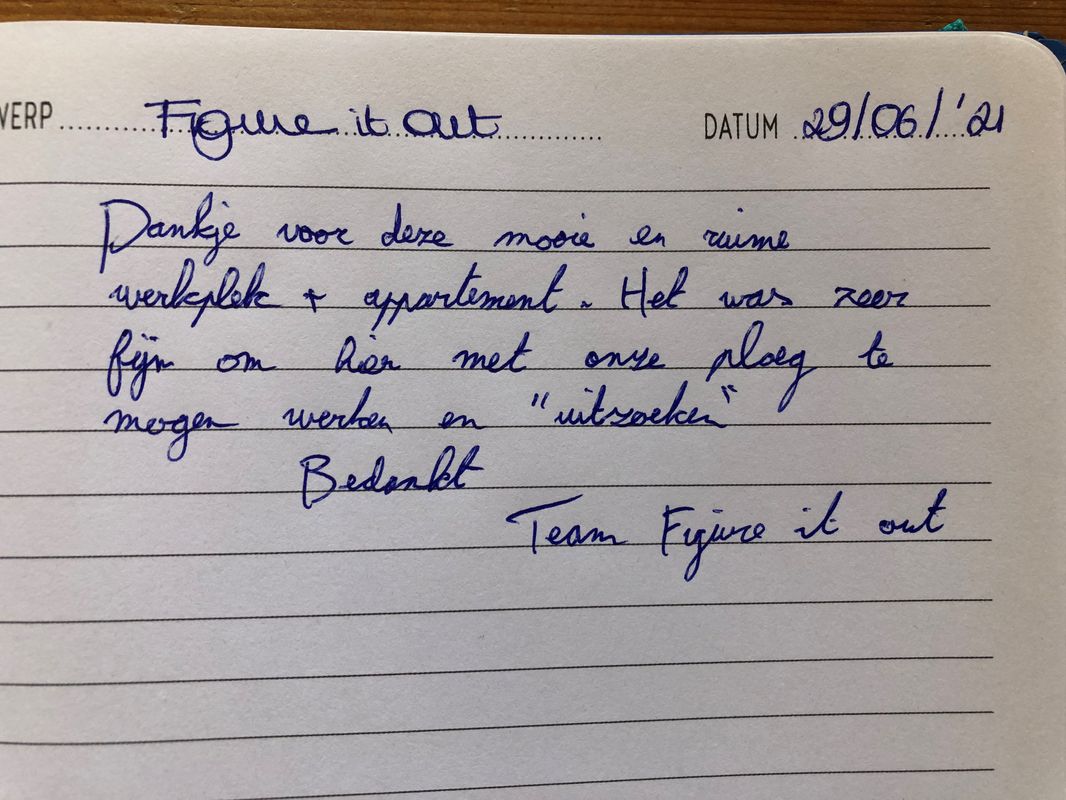 WERP Figure it Out DATUM 29/06/'21
Dankje voor deze mooie en ruime
werkplek + appartement. Het was zeer
fijn om hier met onze ploeg te
mogen werken en "uitzoeken"
Bedankt
Team Figure it out